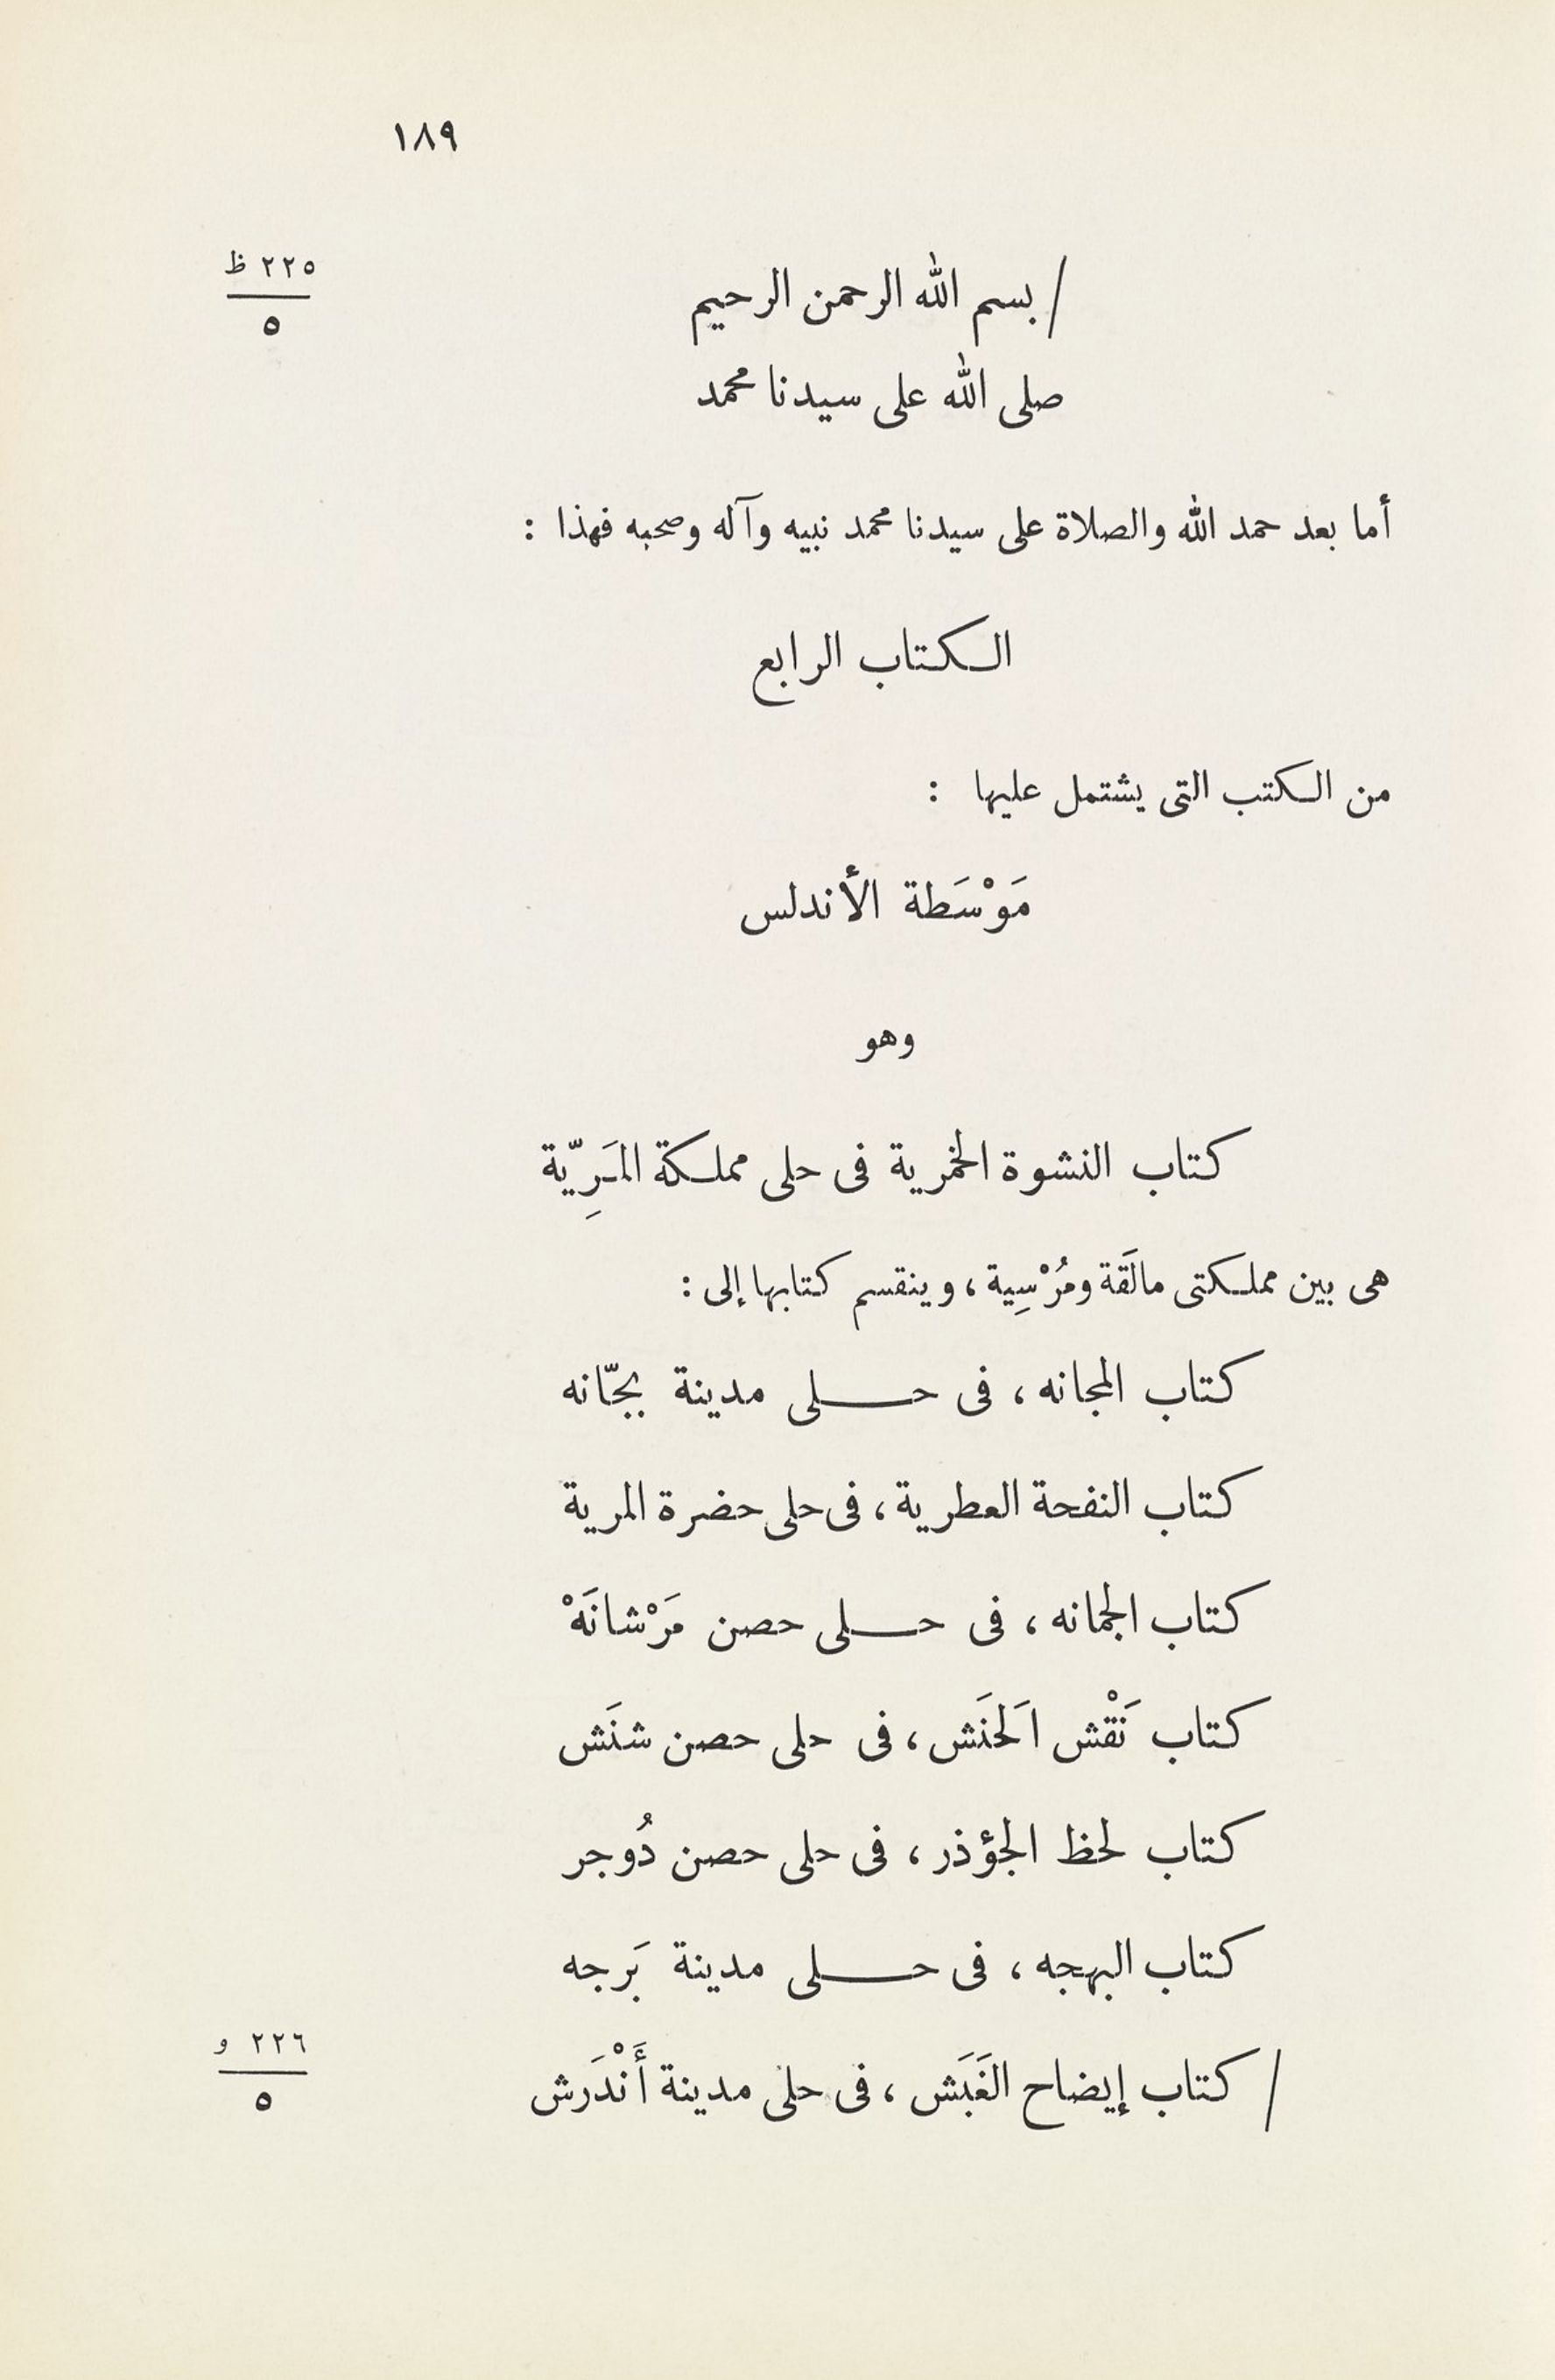 ١٨٩
٢٢٥ ظ
٥
/ بسم الله الرحمن الرحيم
صلى الله على سيدنا محمد
أما بعد حمد الله والصلاة على سيدنا محمد نبيه وآله وصحبه فهذا :
الكتاب الرابع
من الكتب التى يشتمل عليها :
مَوْسَطة الأندلس
وهو
كتاب النشوة الخمرية فى حلى مملكة المَرِيّة
هى بين مملكتى مالَقة ومُرْسِية ، وينقسم كتابها إلى :
كتاب المجانه ، فى حلى مدينة بجّانه
كتاب النفحة العطرية ، فى حلى حضرة المرية
كتاب الجمانه ، فى حلى حصن مَرْشانَهْ
كتاب نَقْش الَحنَش ، فى حلى حصن شنَش
كتاب لحظ الجؤذر ، فى حلى حصن دُوجر
كتاب البهجه ، فى حلى مدينة بَرجه
٢٢٦ و
٥
/ كتاب إيضاح الغَبَش ، فى حلى مدينة أَنْدَرش